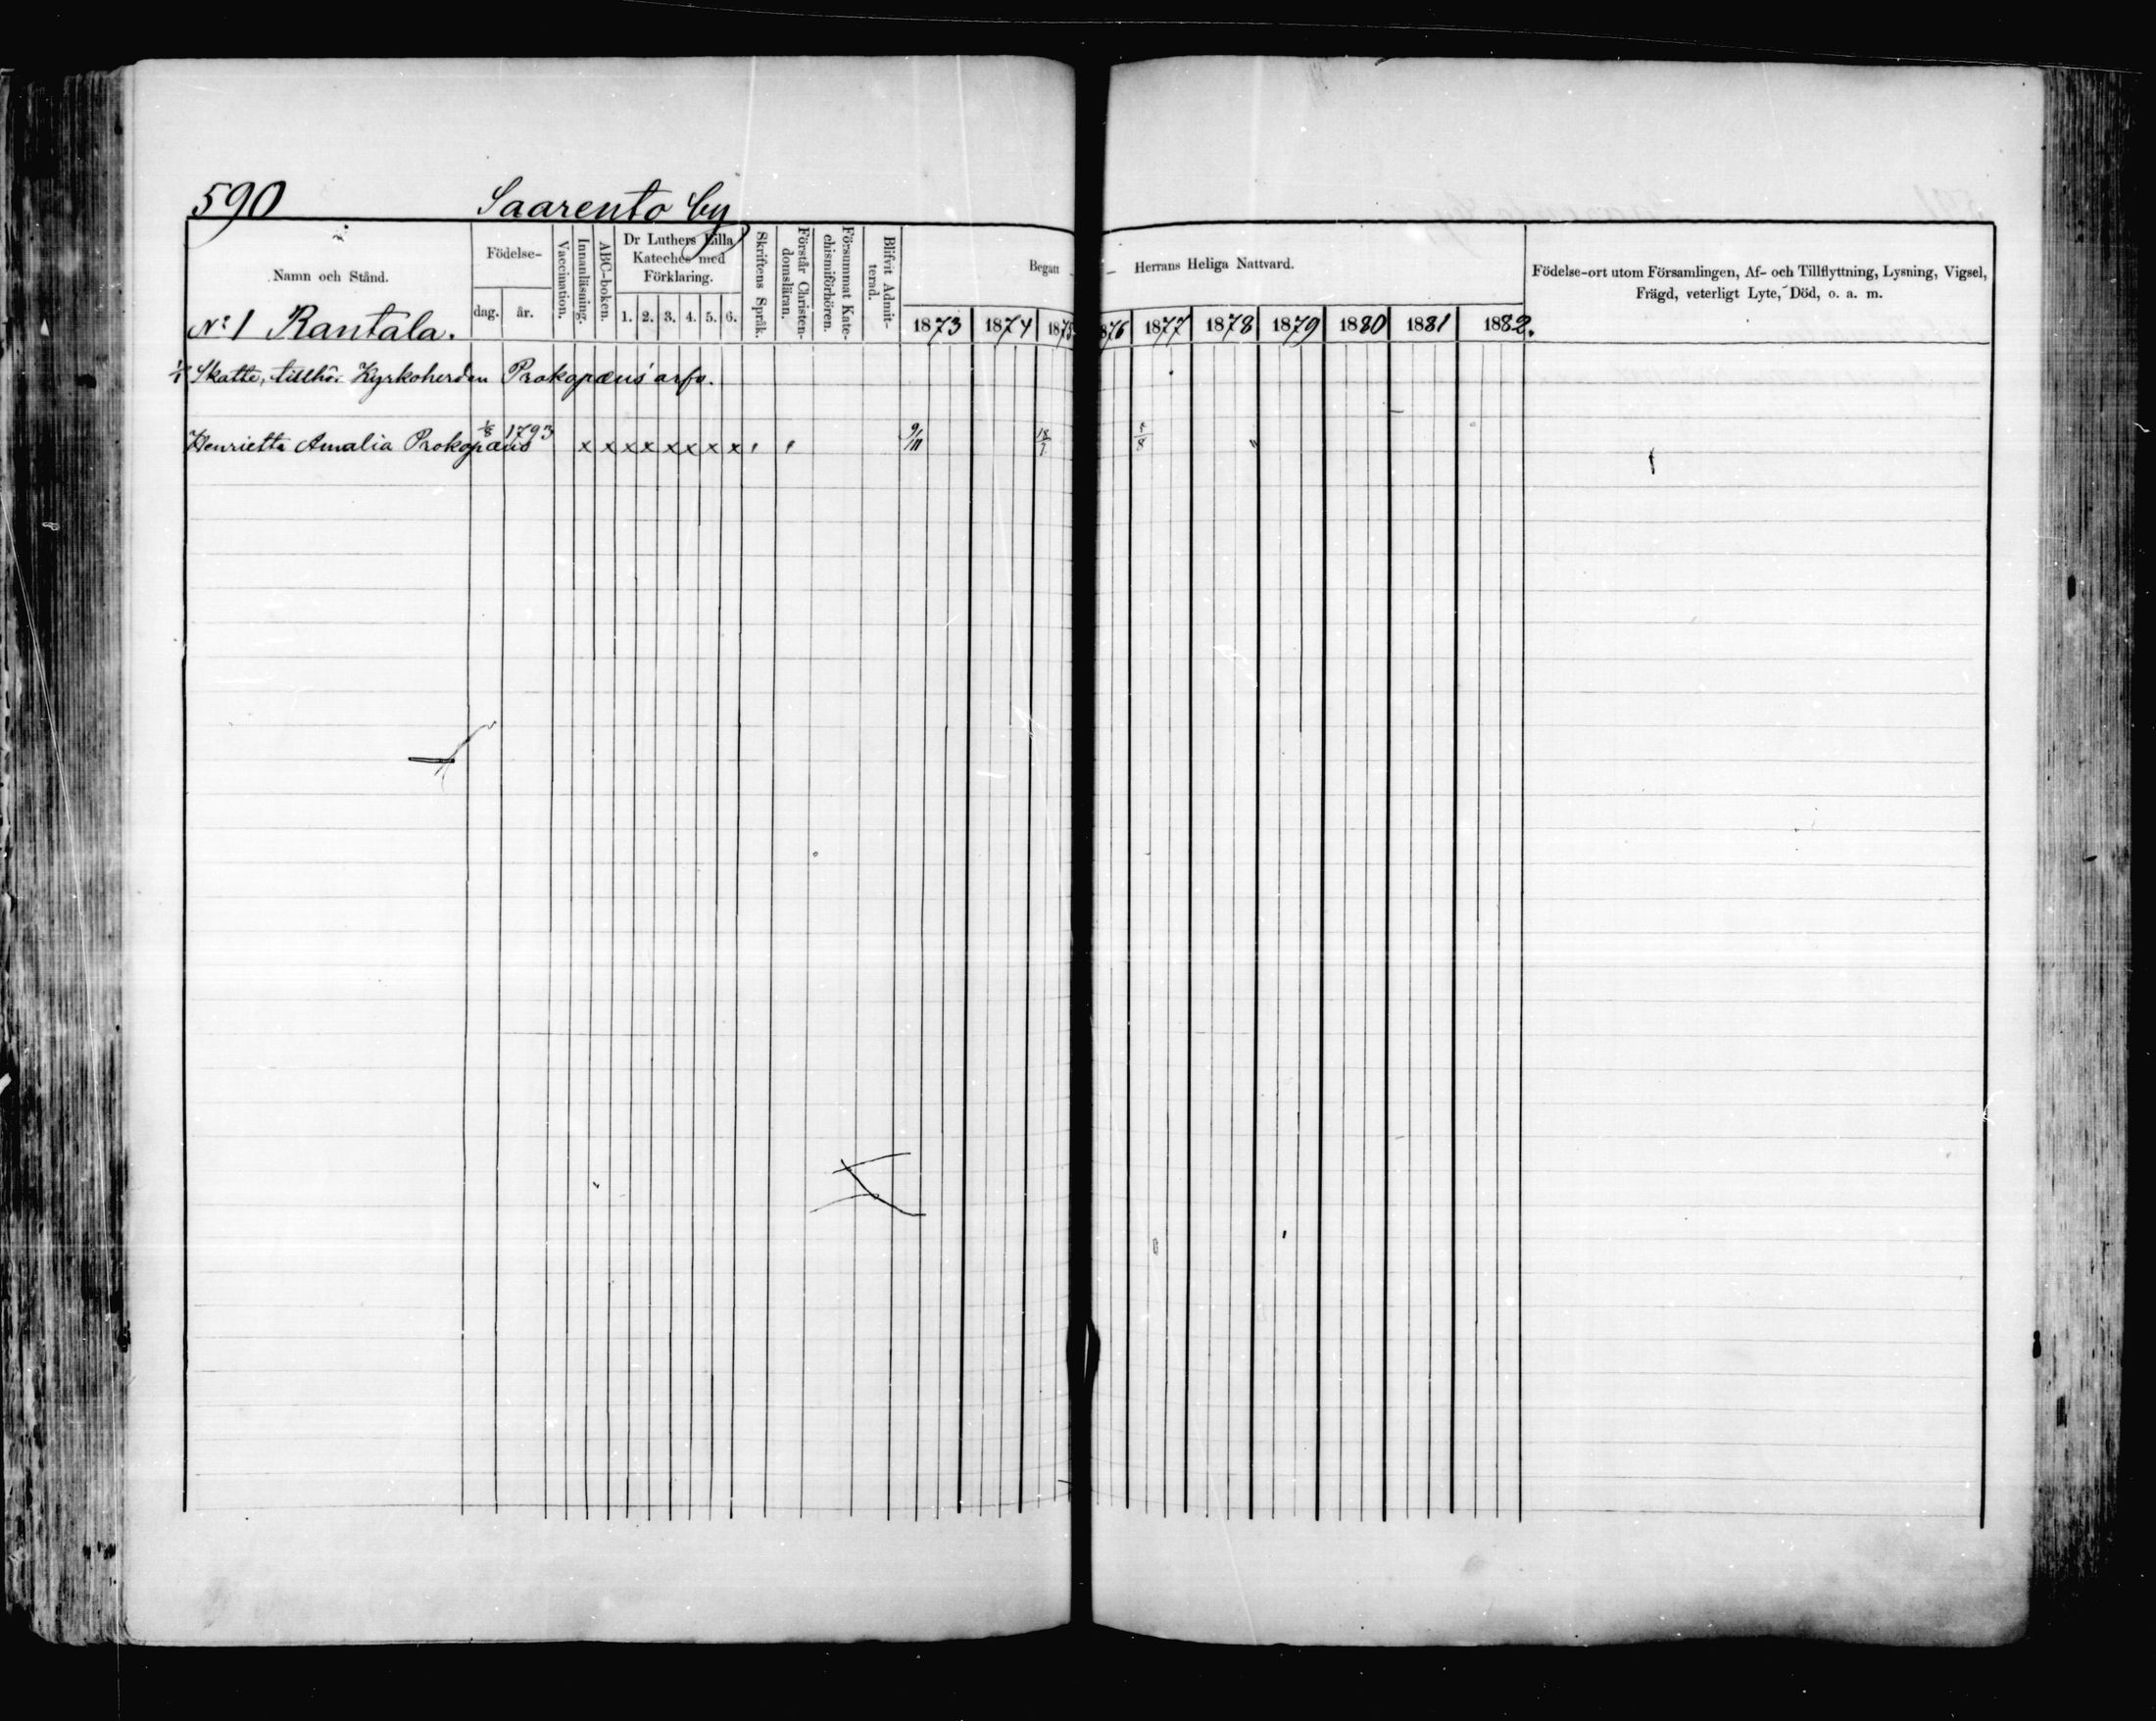 590 Saarento by
Namn och Stånd.
Födelse-
dag.
år.
Vaccination.
Innanläsning.
ABC-boken.
Dr Luthers Lilla
Kateches med
Förklaring.
1. 2. 3. 4. 5. 6.
Skriftens Språk.
Förstår Christen-
domsläran.
Försummat Kate-
chismiförhören.
Blifvit Admit-
terad.
Begått — Herrans Heliga Nattvard.
1873 1874 1875 1876 1877 1878 1879 1880 1881 1882.
Födelse-ort utom Församlingen, Af- och Tillflyttning, Lysning, Vigsel,
Frägd, veterligt Lyte, Död, o. a. m.
No 1 Rantala.
Skatte, tillhör Kyrkoherden Prokopæus' arfv.
Henrietta Amalia Prokopæus 1793 x x x x x x x x 9/11 18/7 5/8